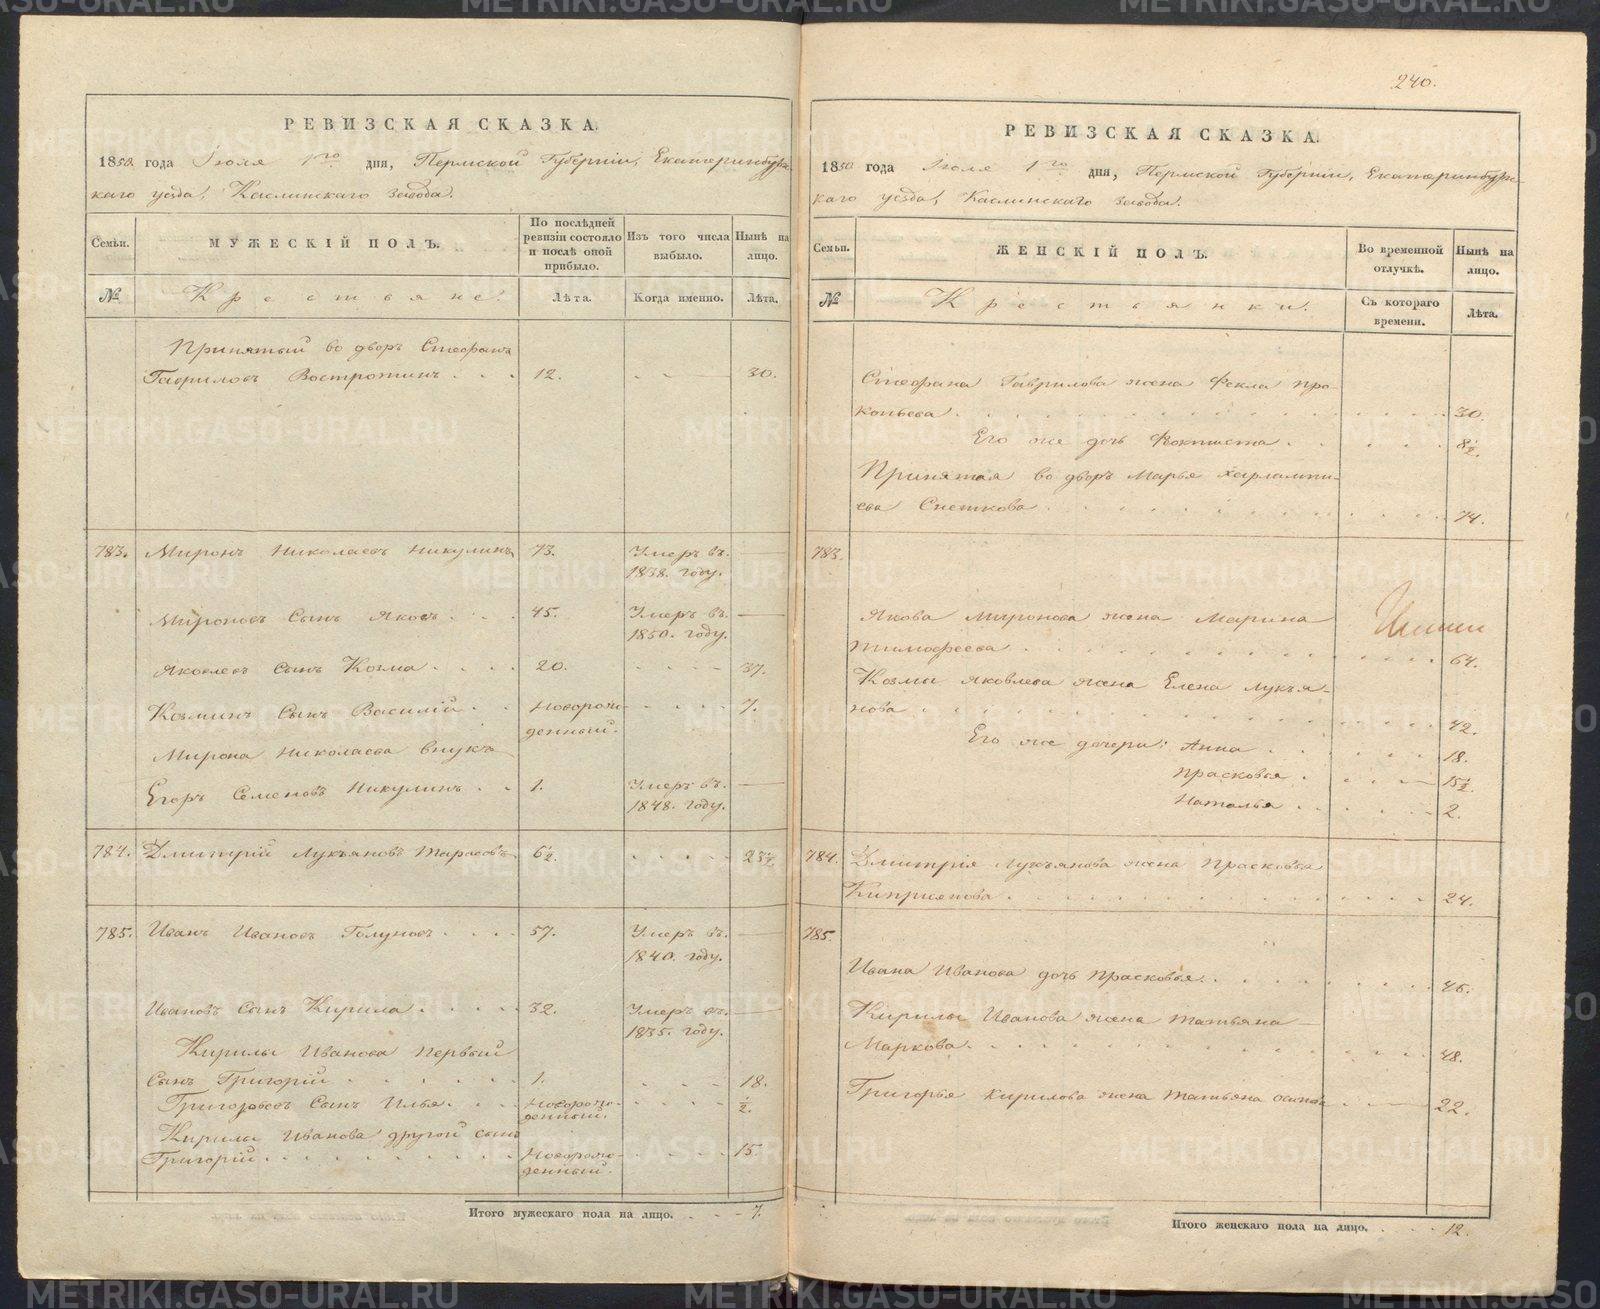 240.
РЕВИЗСКАЯ СКАЗКА.
1850 года Іюля 1го дня, Пермской Губерніи, Екатеринбургс-
каго уѣзда, Каслинскаго завода.
Семьи.
МУЖЕСКІЙ ПОЛЪ.
По послѣдней ревизіи состояло и послѣ оной прибыло.
Изъ того числа выбыло.
Нынѣ на лицо.
№
Крестьяне.
Лѣта.
Когда именно.
Лѣта.
Принятый во дворъ Стефанъ
Гавриловъ Востротинъ . . . 12. 30.
783. Миронъ Николаевъ Никулинъ 73. Умеръ въ
1838. году.
Мироновъ Сынъ Яковъ . . . 45. Умеръ въ
1850. году.
Яковлевъ Сынъ Козма . . . . 20. 37.
Козминъ Сынъ Василій . . Новорож-
денный. 7.
Мирона Николаева внукъ
Егоръ Семеновъ Никулинъ . . 1. Умеръ въ
1848. году.
784. Дмитрій Лукьяновъ Тарасовъ 6½.
785. Иванъ Ивановъ Голуновъ . . . . 57. Умеръ въ
1840. году.
Ивановъ Сынъ Кирила . . . . . 32. Умеръ въ
1835. году.
Кирилы Иванова первый
Сынъ Григорій . . . . . . 1. 18.
Григорьевъ Сынъ Илья . . . Новорож-
денный. ½.
Кирилы Иванова другой сынъ
Григорій . . . . . . . . . Новорож-
денный. 15.
Итого мужескаго пола на лицо. . . . 7.
РЕВИЗСКАЯ СКАЗКА.
1850 года Іюля 1го дня, Пермской Губерніи, Екатеринбургс-
каго уѣзда, Каслинскаго завода.
Семьи.
ЖЕНСКІЙ ПОЛЪ.
Во временной отлучкѣ.
Нынѣ на лицо.
№
Крестьянки.
Съ котораго времени.
Лѣта.
Стефана Гаврилова жена Фекла Про-
копьева . . . 30.
Его же дочь Фектиста . . . 8½.
Принятая во дворъ Марья Харлампи-
ева Снеткова . . . 74.
783.
Якова Миронова жена Марина
Тимофеева . . . 64.
Козмы Яковлева жена Елена Лукья-
нова . . . 42.
Его же дочери: Анна . . . 18.
Прасковья . . . 15½.
Наталья . . . 2.
784. Дмитрія Лукьянова жена Прасковья
Киприянова . . . 24.
785.
Ивана Иванова дочь Прасковья . . . 46.
Кирилы Иванова жена Татьяна
Маркова . . . 48.
Григорья Кирилова жена Татьяна Осипова 22.
Итого женскаго пола на лицо. . . . 12.
METRIKI.GASO-URAL.RU